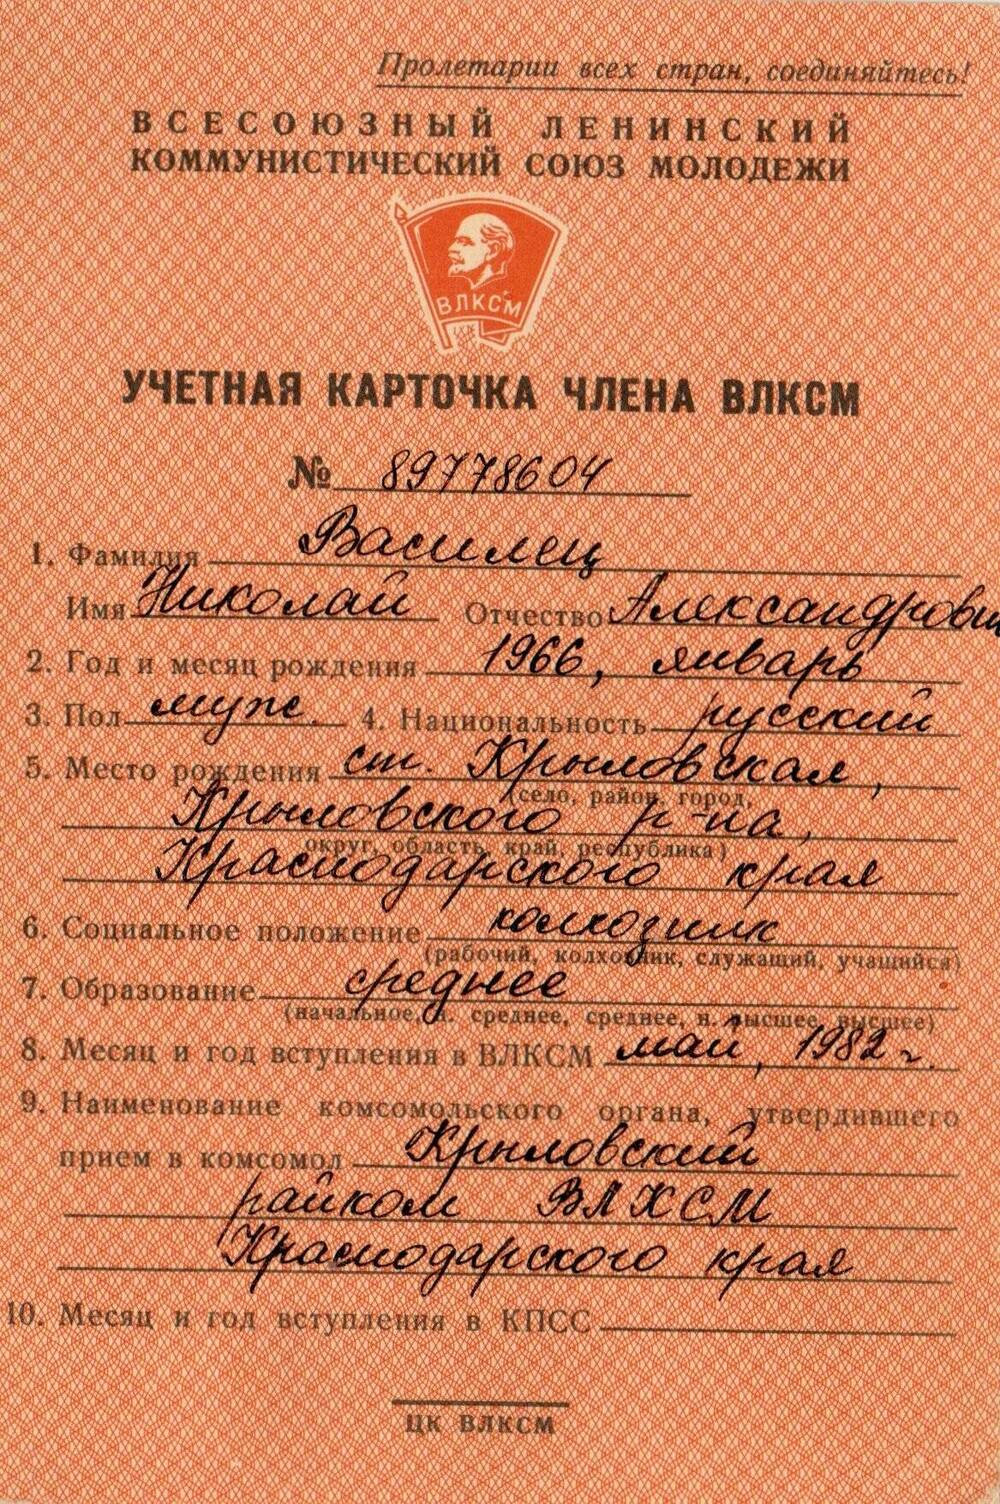 Пролетарии всех стран, соединяйтесь!
ВСЕСОЮЗНЫЙ ЛЕНИНСКИЙ
КОММУНИСТИЧЕСКИЙ СОЮЗ МОЛОДЕЖИ
ВЛКСМ
УЧЕТНАЯ КАРТОЧКА ЧЛЕНА ВЛКСМ
№ 89778604
1. Фамилия Василец
Имя Николай Отчество Александрович
2. Год и месяц рождения 1966, январь
3. Пол муж. 4. Национальность русский
5. Место рождения ст. Крыловская,
(село, район, город,
Крыловского р-на,
округ, область, край, республика)
Краснодарского края
6. Социальное положение колхозник
(рабочий, колхозник, служащий, учащийся)
7. Образование среднее
(начальное, н. среднее, среднее, н. высшее, высшее)
8. Месяц и год вступления в ВЛКСМ май, 1982 г.
9. Наименование комсомольского органа, утвердившего
прием в комсомол Крыловский
райком ВЛКСМ
Краснодарского края
10. Месяц и год вступления в КПСС
ЦК ВЛКСМ